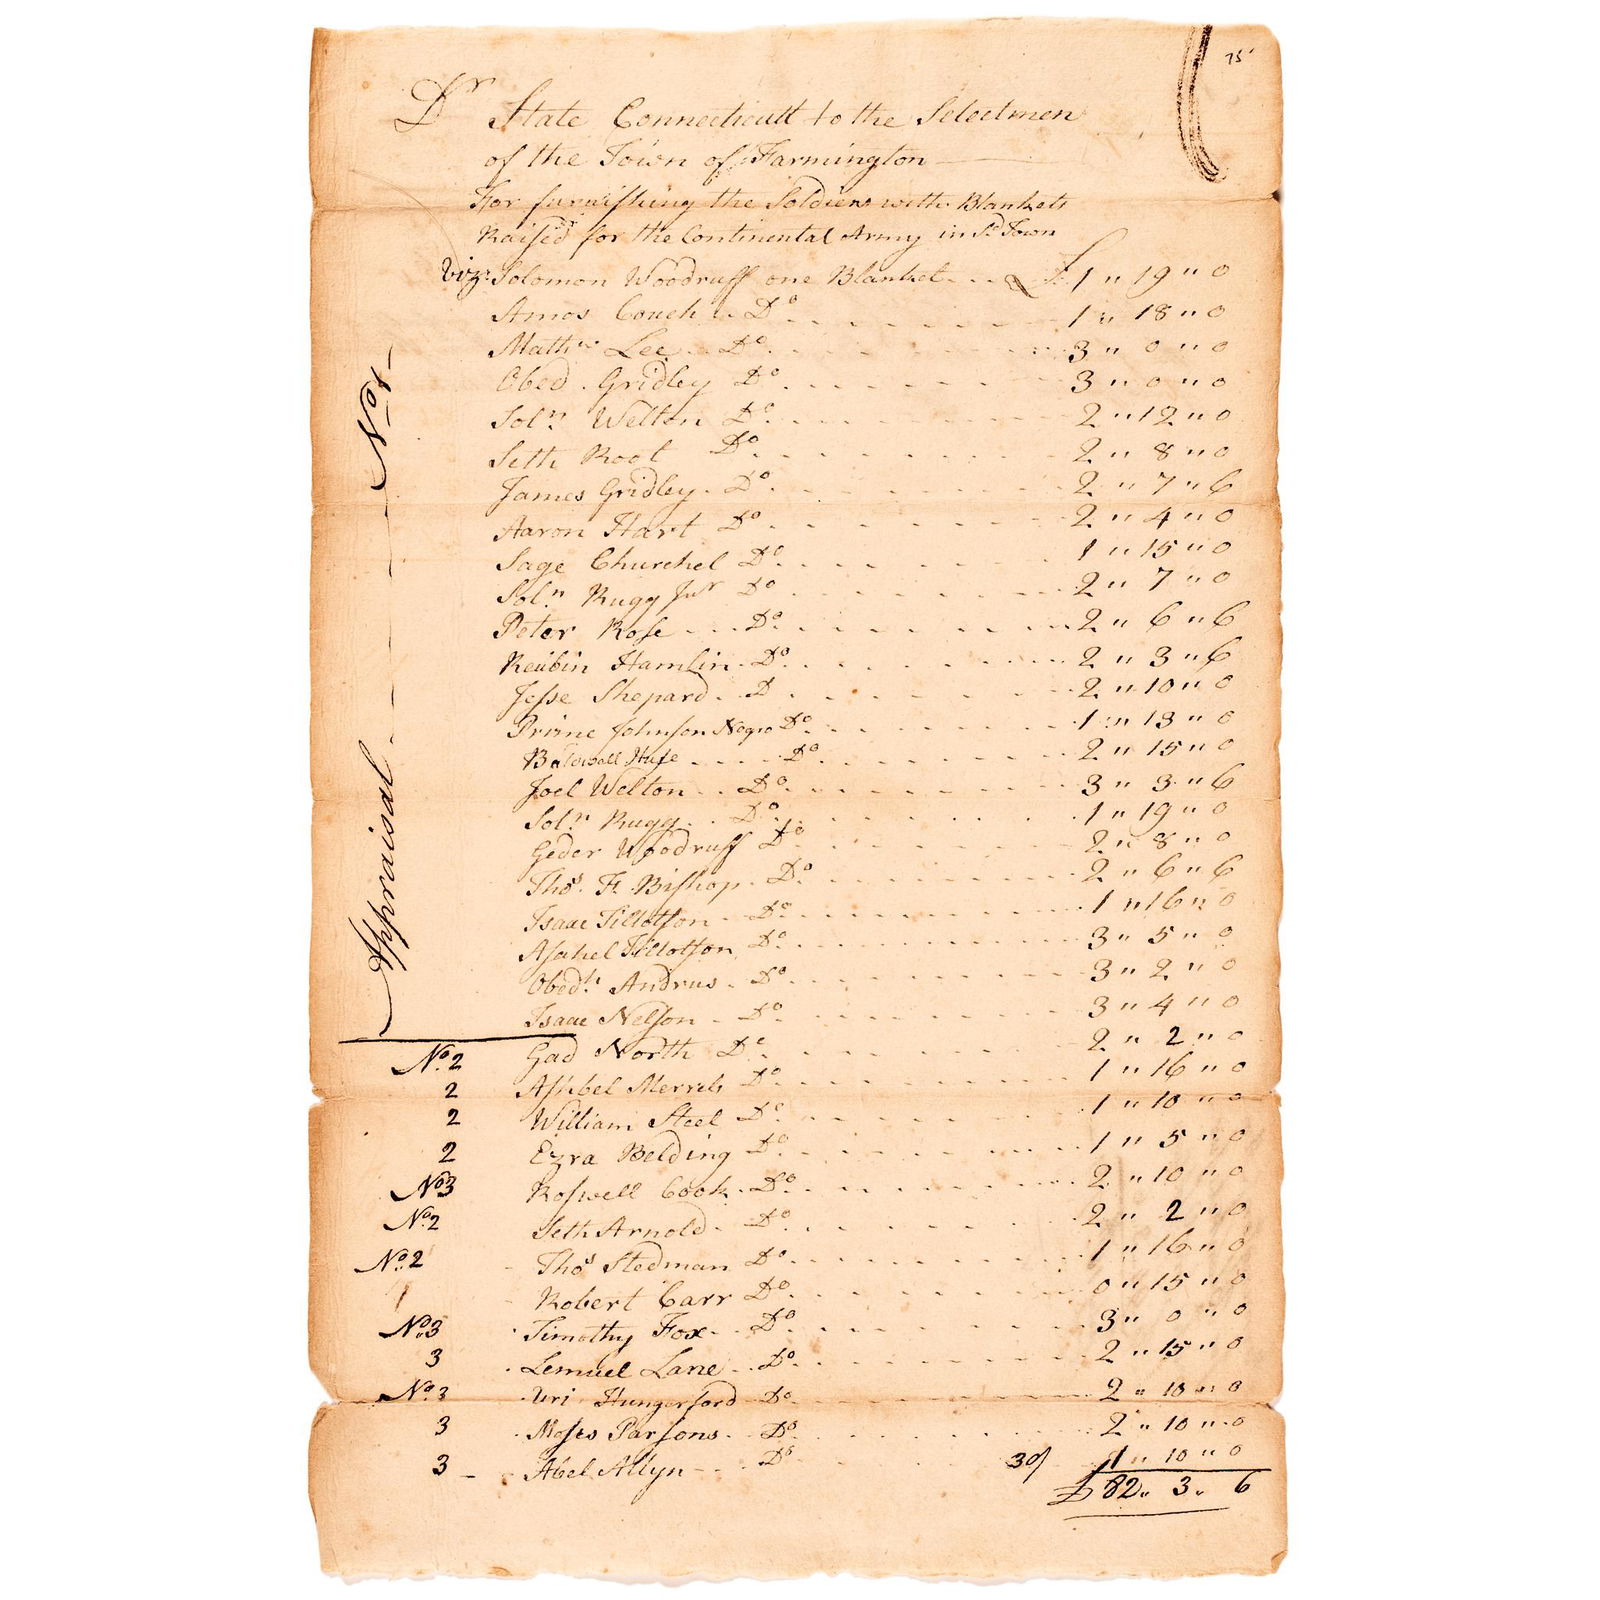 75
Dr State Connecticutt to the Selectmen
of the Town of Farmington
For furnishing the Soldiers with Blankets
Raised for the Continental Army in Sd Town
Viz: Solomon Woodruff one Blanket £ 1 " 19 " 0
Amos Couch Do 1 " 18 " 0
Mathw Lee Do 3 " 0 " 0
Obed Gridley Do 3 " 0 " 0
Soln Welton Do 2 " 12 " 0
Seth Root Do 2 " 8 " 0
James Gridley Do 2 " 7 " 6
Aaron Hart Do 2 " 4 " 0
Sage Churchel Do 1 " 15 " 0
Soln Rugg Junr Do 2 " 7 " 0
Peter Rose Do 2 " 6 " 6
Reubin Hamlin Do 2 " 3 " 6
Jesse Shepard D 2 " 10 " 0
Prime Johnson Negro Do 1 " 13 " 0
Do 2 " 15 " 0
Joel Welton Do 3 " 3 " 6
Soln Rugg Do 1 " 19 " 0
Geder Woodruff Do 2 " 8 " 0
Thos F. Bishop Do 2 " 6 " 6
Isaac Tillotson Do 1 " 16 " 0
Asahel Tillotson Do 3 " 5 " 0
Obedh Andrus Do 3 " 2 " 0
Isaac Nelson Do 3 " 4 " 0
Appraisal No 1
No. 2 Gad North Do 2 " 2 " 0
2 Ashbel Merrels Do 1 " 16 " 0
2 William Steel Do 1 " 10 " 0
2 Ezra Belding Do 1 " 5 " 0
No 3 Roswell Cook Do 2 " 10 " 0
No. 2 Seth Arnold Do 2 " 2 " 0
No. 2 Thos Stedman Do 1 " 16 " 0
1 Robert Carr Do 0 " 15 " 0
No. 3 Timothy Fox Do 3 " 0 " 0
3 Lemuel Lane Do 2 " 15 " 0
No. 3 Uri Hungerford Do 2 " 10 " 0
3 Moses Parsons Do 2 " 10 " 0
3 Abel Allyn Do 30/ 1 " 10 " 0
£ 82 " 3 " 6